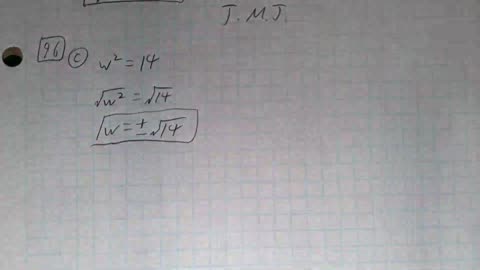 J.M.J.
96 c w² = 14
√w² = √14
w = ± √14